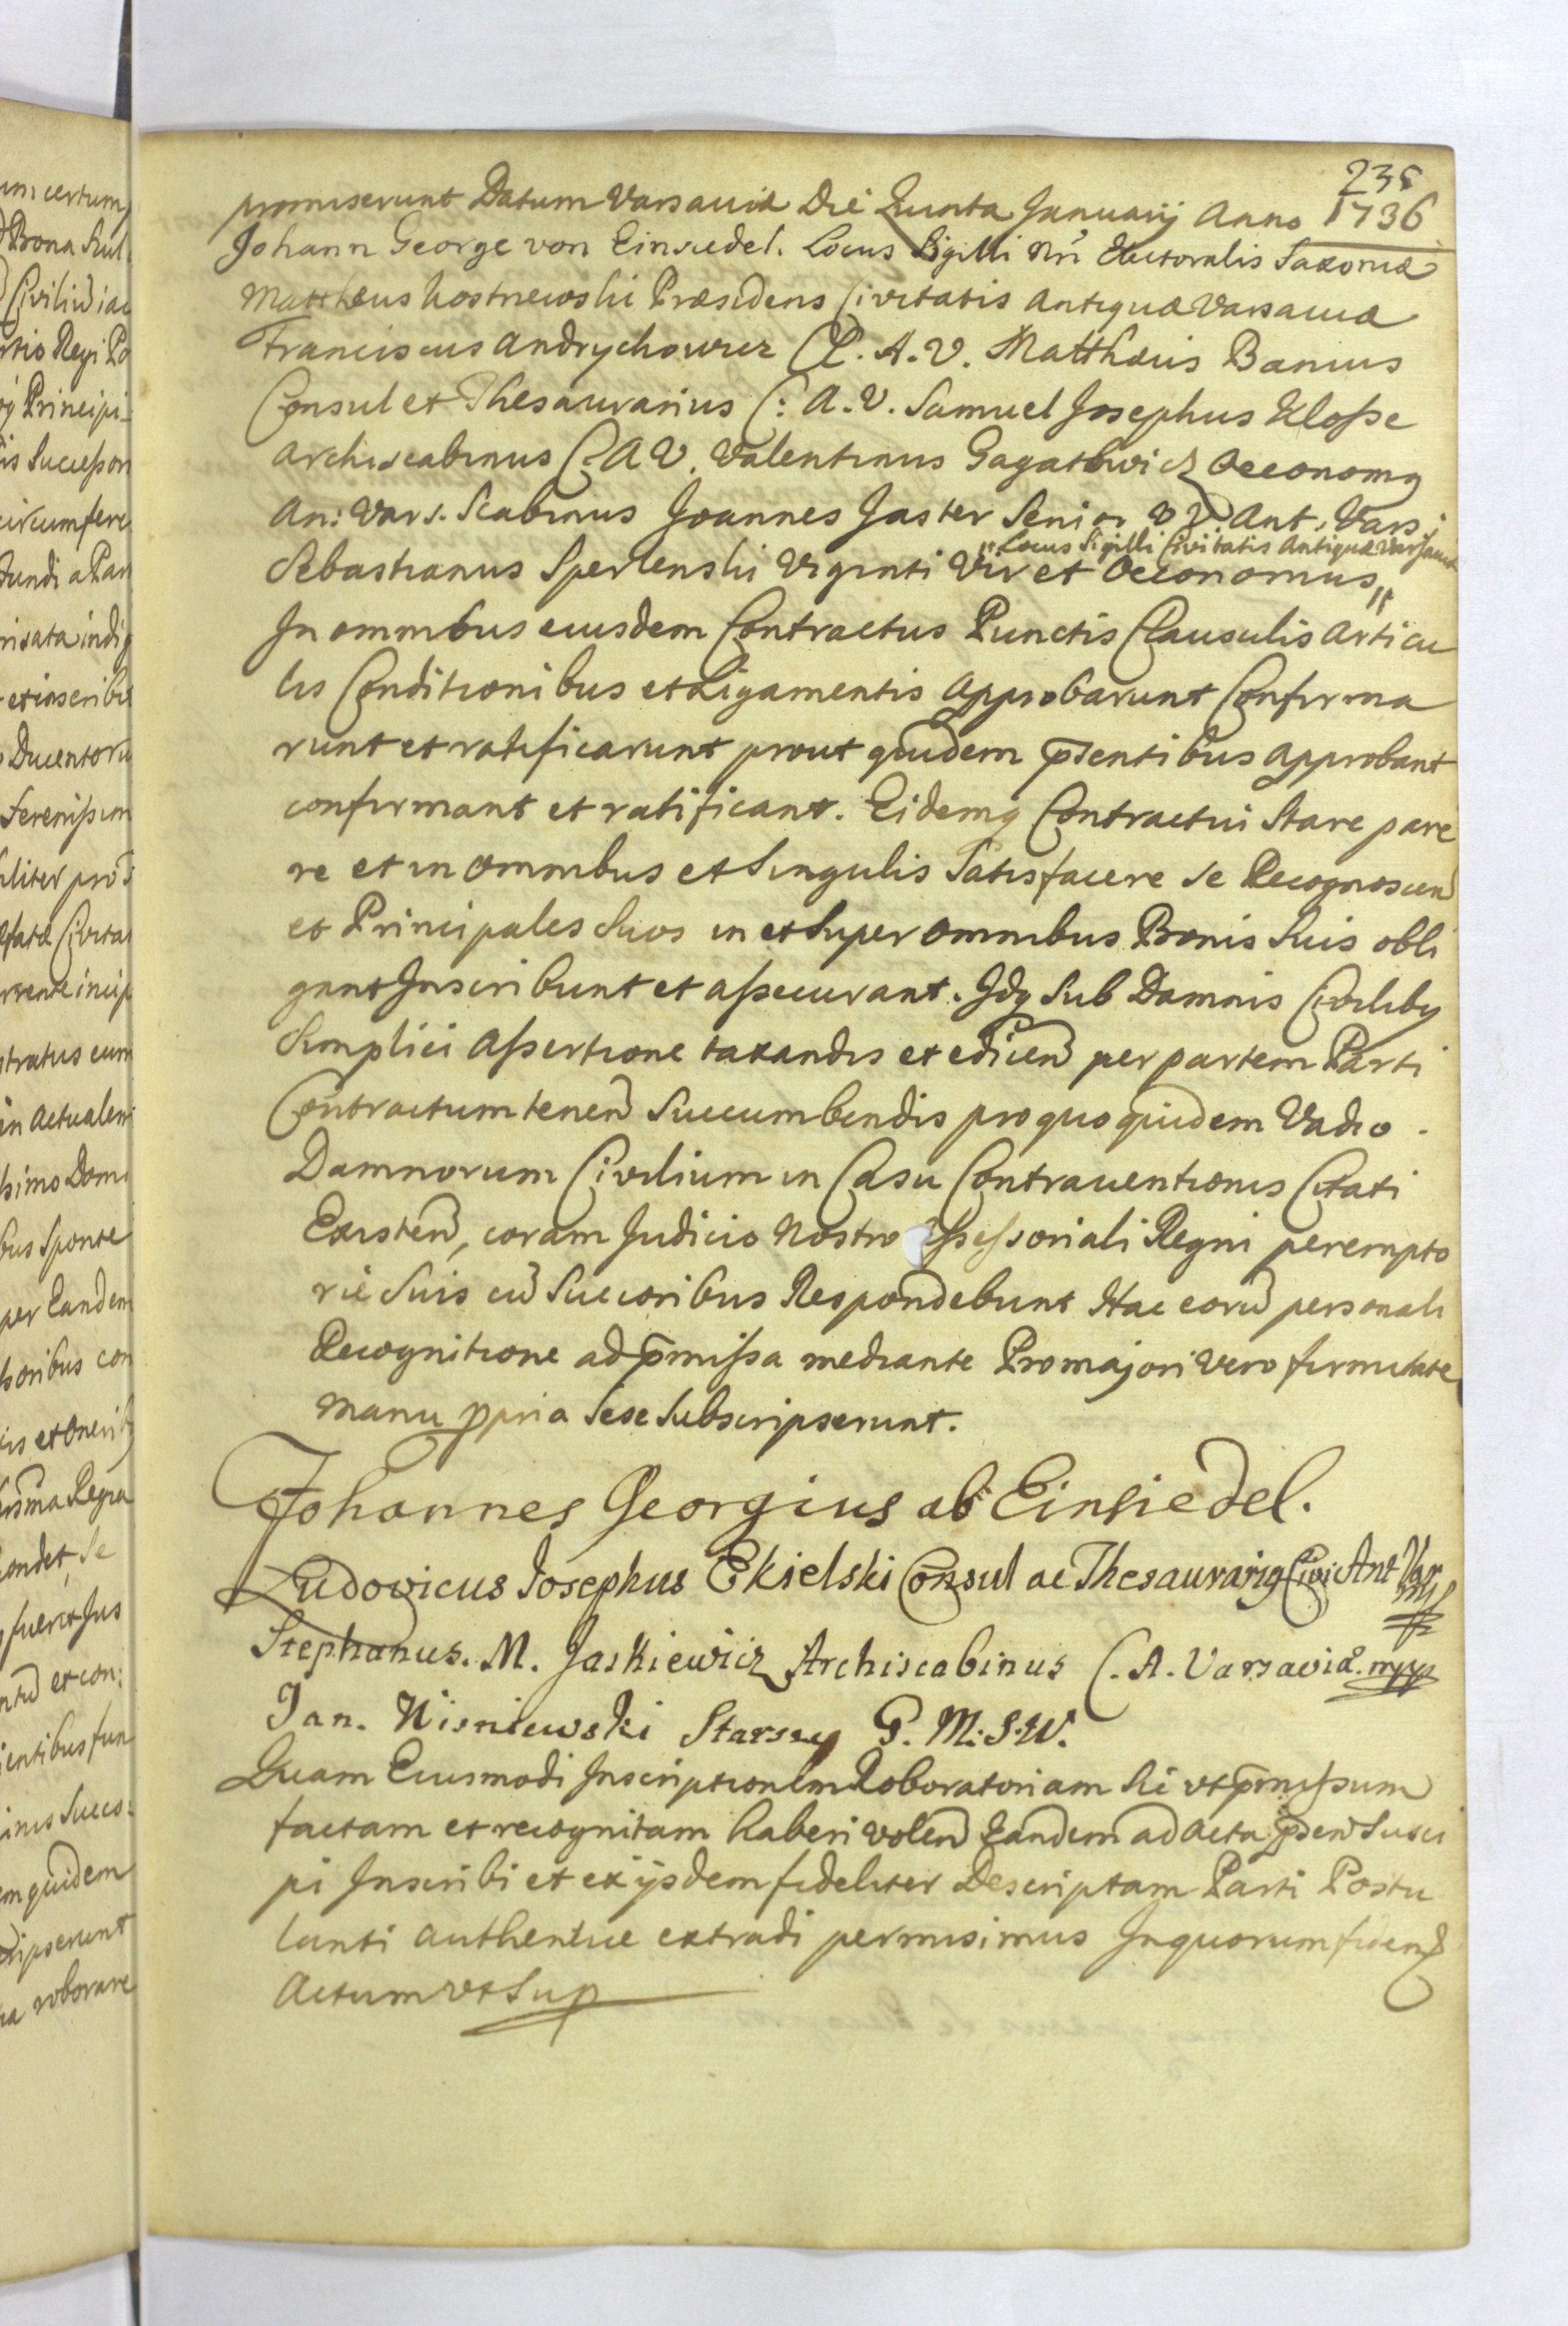 235
promiserunt Datum Varsaviæ Die Quinta Januarij Anno 1736
Johann George von Einsiedel. Locus Sigilli Nri Electoralis Saxoniæ
Matthæus Kostrzewski Præsidens Civitatis Antiquæ Varsaviæ
Franciscus Andrychowicz C. A. V. Matthæus Banius
Consul et Thesaurarius C: A. V. Samuel Josephus Klosse
Archiscabinus C. A V. Valentinus Gagatkwicz Oeconomg
An: Vars. Scabinus Joannes Jaster Senior V V. Ant. Vars:
"Locus Sigilli Civitatis Antiquæ Varsaviæ
Sebastianus Sperlenski Viginti Vir et Oeconomus "
In omnibus eiusdem Contractus Punctis Clausulis Articu
lis Conditionibus et Ligamentis Approbarunt Confirma
runt et ratificarunt prout quidem p̄sentibus approbant
confirmant et ratificant. Eidemq Contractui Stare pare
re et in omnibus et Singulis Satisfacere se Recognoscen
et Principales Suos in et Super omnibus Bonis Suis obli
gant Inscribunt et assecurant. Idq Sub Damnis Civilibq
Simplici Assertione taxandis et edicen per partem Parti
Contractum tenen Succumbendis pro quo quidem Vadio
Damnorum Civilium in Casu Contraventionis Citati
Existen, coram Judicio Nostro Assessoriali Regni perempto
rie Suis cu Succoribus Respondebunt Hac eoru personali
Recognitione ad p̄missa mediante Pro majori vero firmitate
manu ppria Sese Subscripserunt.
Johannes Georgius ab Einsiedel.
Ludovicus Josephus Ekielski Consul ac Thesaurariq Civi: Ant Var mp
Stephanus. M. Jaskiewicz Archiscabinus C. A. Varsaviæ. mpp
Jan. Wisniewski Starszy G. M. S. W.
Quam Eiusmodi Inscriptionem Roboratoriam Sic ut p̄missum
factam et recognitam haberi volen Eandem ad Acta p̄sen Susci
pi Inscribi et ex ijsdem fideliter Descriptam Parti Postu
lanti authentice extradi permisimus In quorum fidem
Actum ut Sup